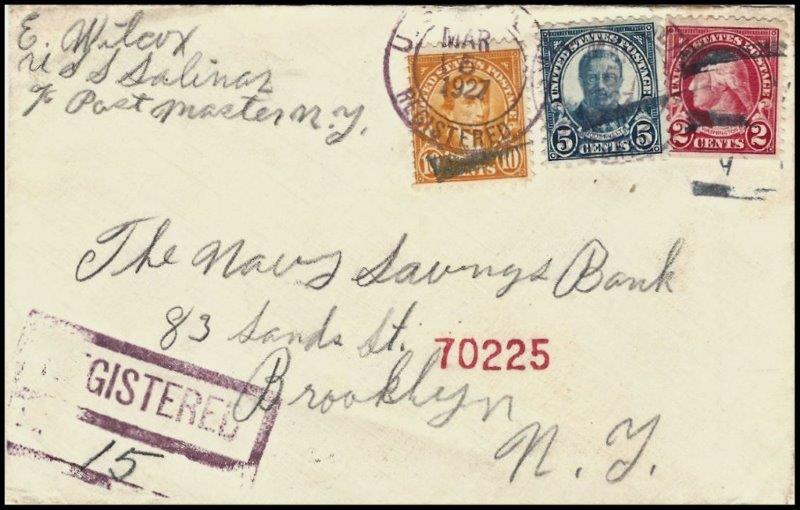 E. Wilcox
U S S Salinas
% Post master N.Y.
U.S.
MAR
1927
REGISTERED
UNITED STATES POSTAGE
10 CENTS 10
UNITED STATES POSTAGE
ROOSEVELT
5 CENTS 5
UNITED STATES POSTAGE
WASHINGTON
2 CENTS 2
4
The Navy Savings Bank
83 Sands St.
70225
Brooklyn
N.Y.
REGISTERED
15